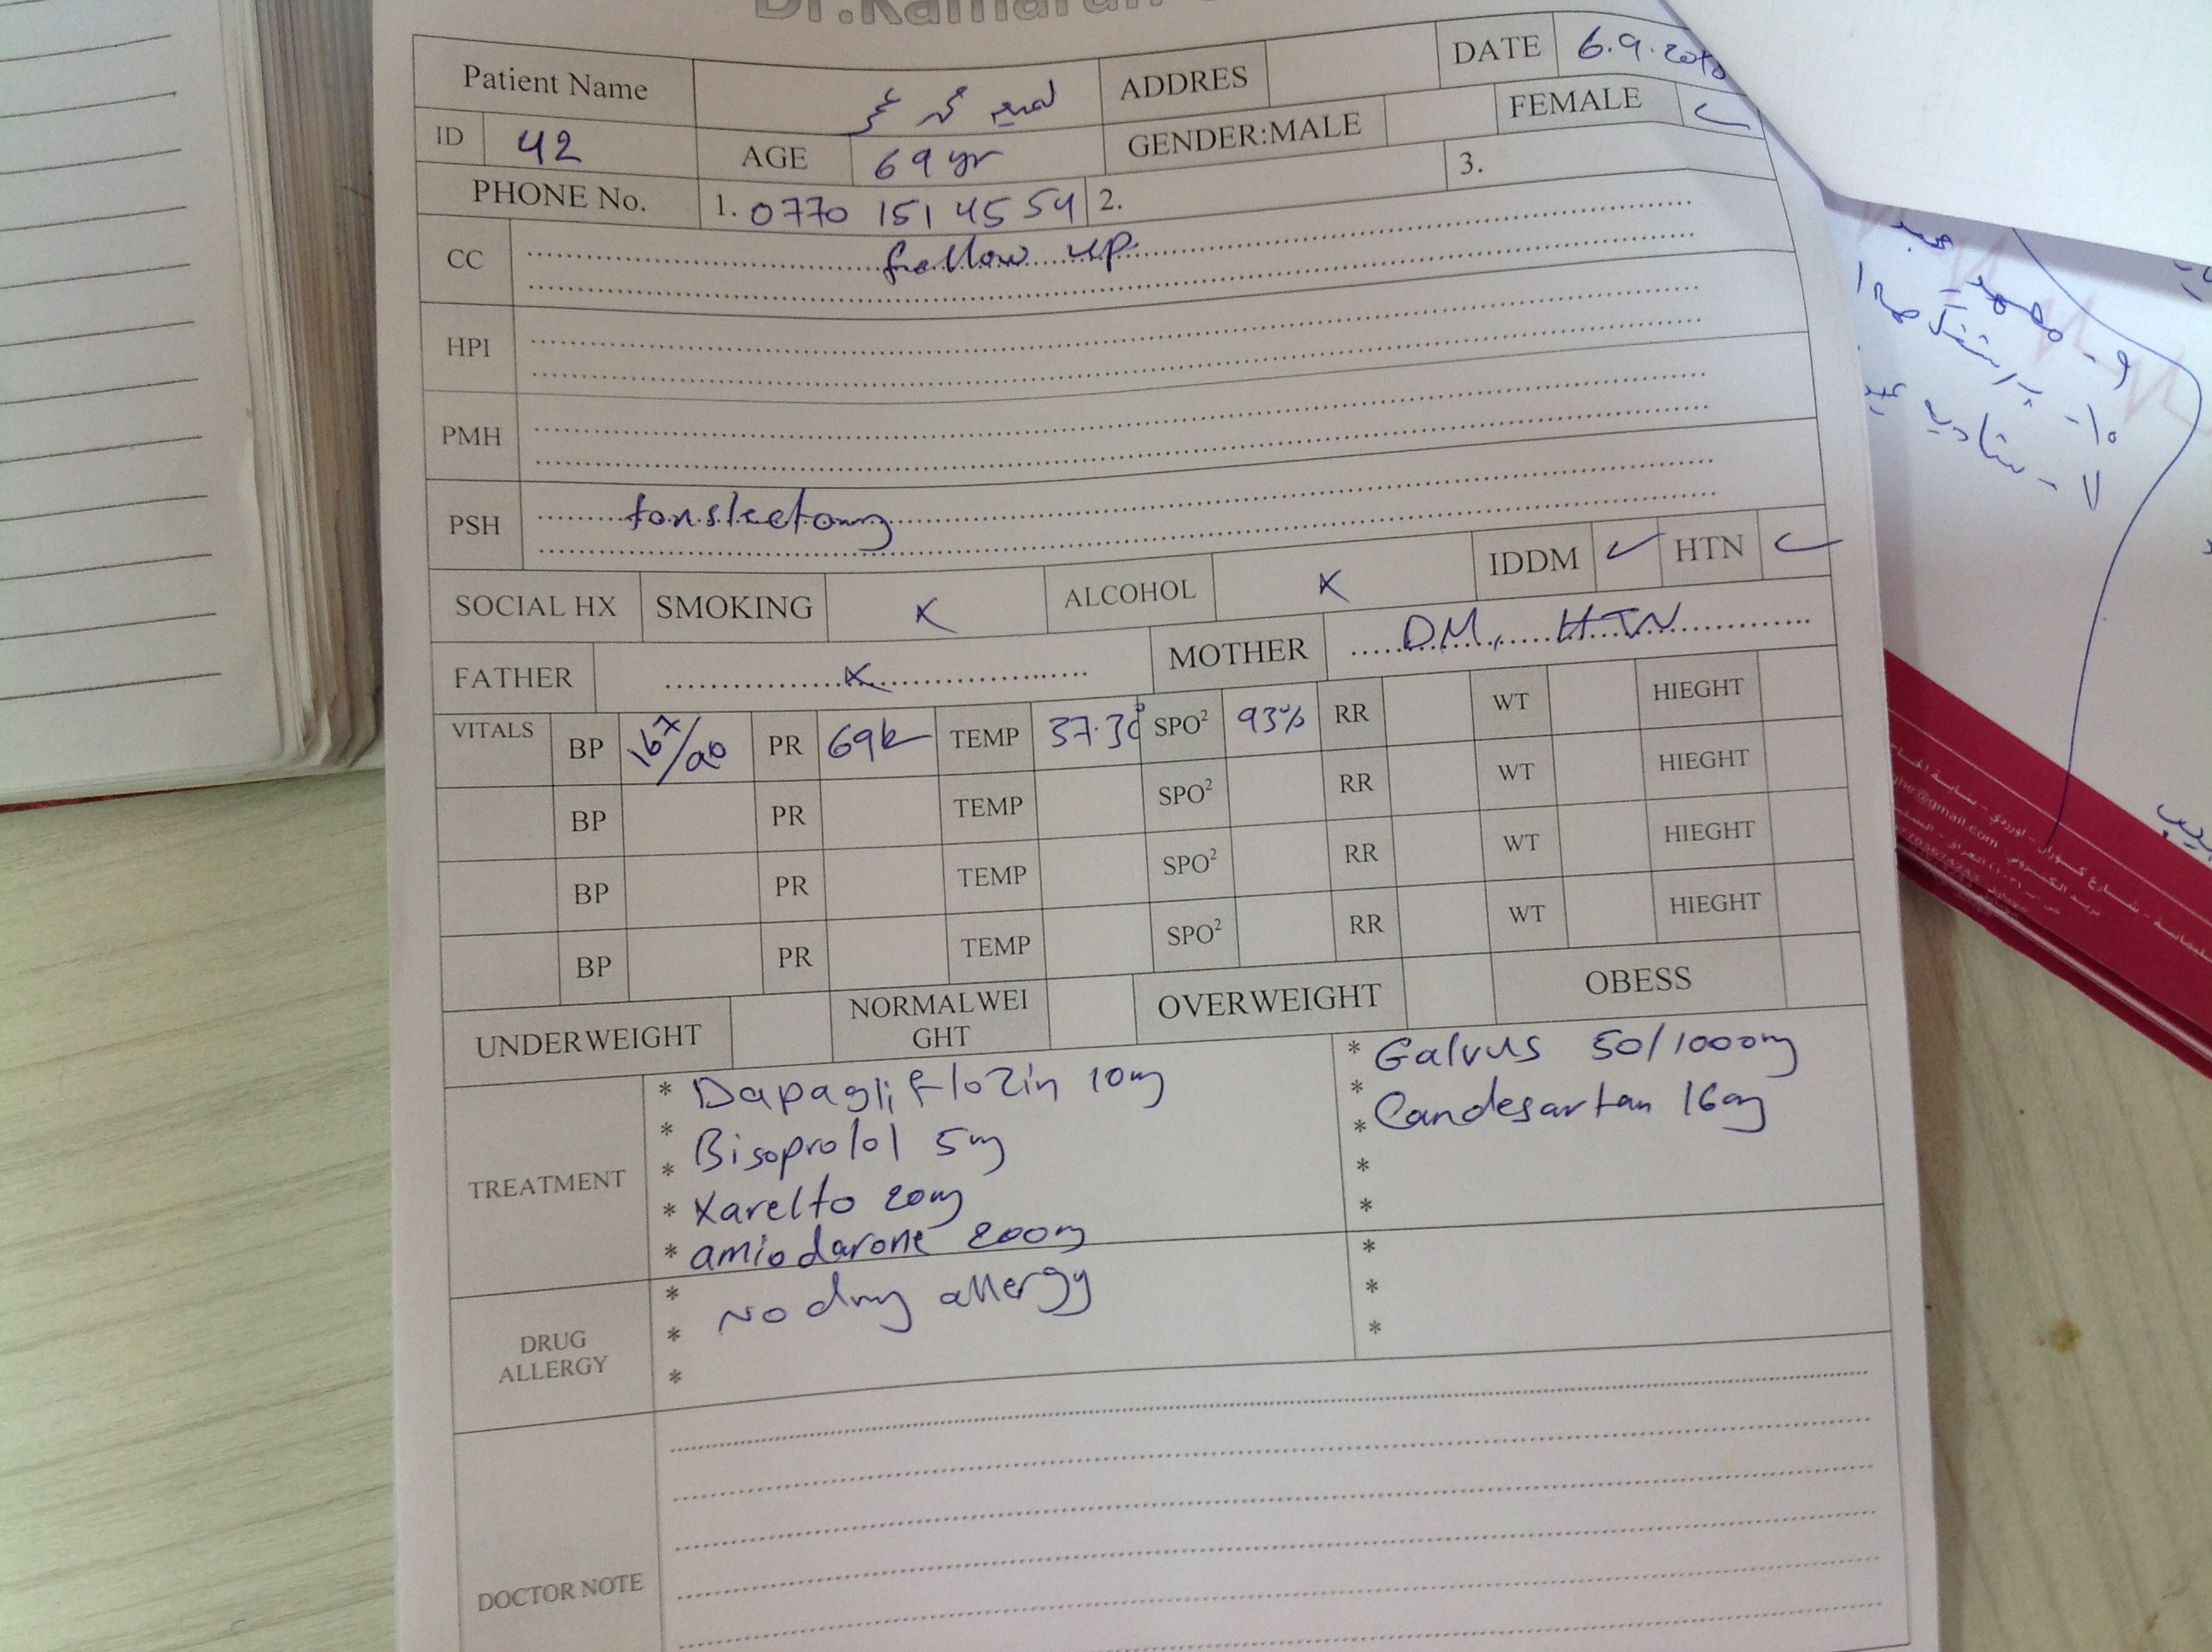 Patient Name لمیعه محمد عمر ADDRES DATE 6.9.
ID 42 AGE 69 yr GENDER:MALE FEMALE ✓
PHONE No. 1. 0770 151 45 54 2. 3.
CC follow up
HPI
PMH
PSH tonslectomy
SOCIAL HX SMOKING x ALCOHOL x IDDM ✓ HTN ✓
FATHER x MOTHER DM, HTN
VITALS BP /90 PR 69 TEMP 37.3 SPO² 93% RR WT HIEGHT
BP PR TEMP SPO² RR WT HIEGHT
BP PR TEMP SPO² RR WT HIEGHT
BP PR TEMP SPO² RR WT HIEGHT
UNDERWEIGHT NORMALWEI OVERWEIGHT OBESS
GHT
TREATMENT
* Dapagliflozin 10mg
* Bisoprolol 5mg
* Xarelto 20mg
* amiodarone 200mg
* Galvus 50/1000mg
* Candesartan 16mg
DRUG
ALLERGY
* No drug allergy
DOCTOR NOTE